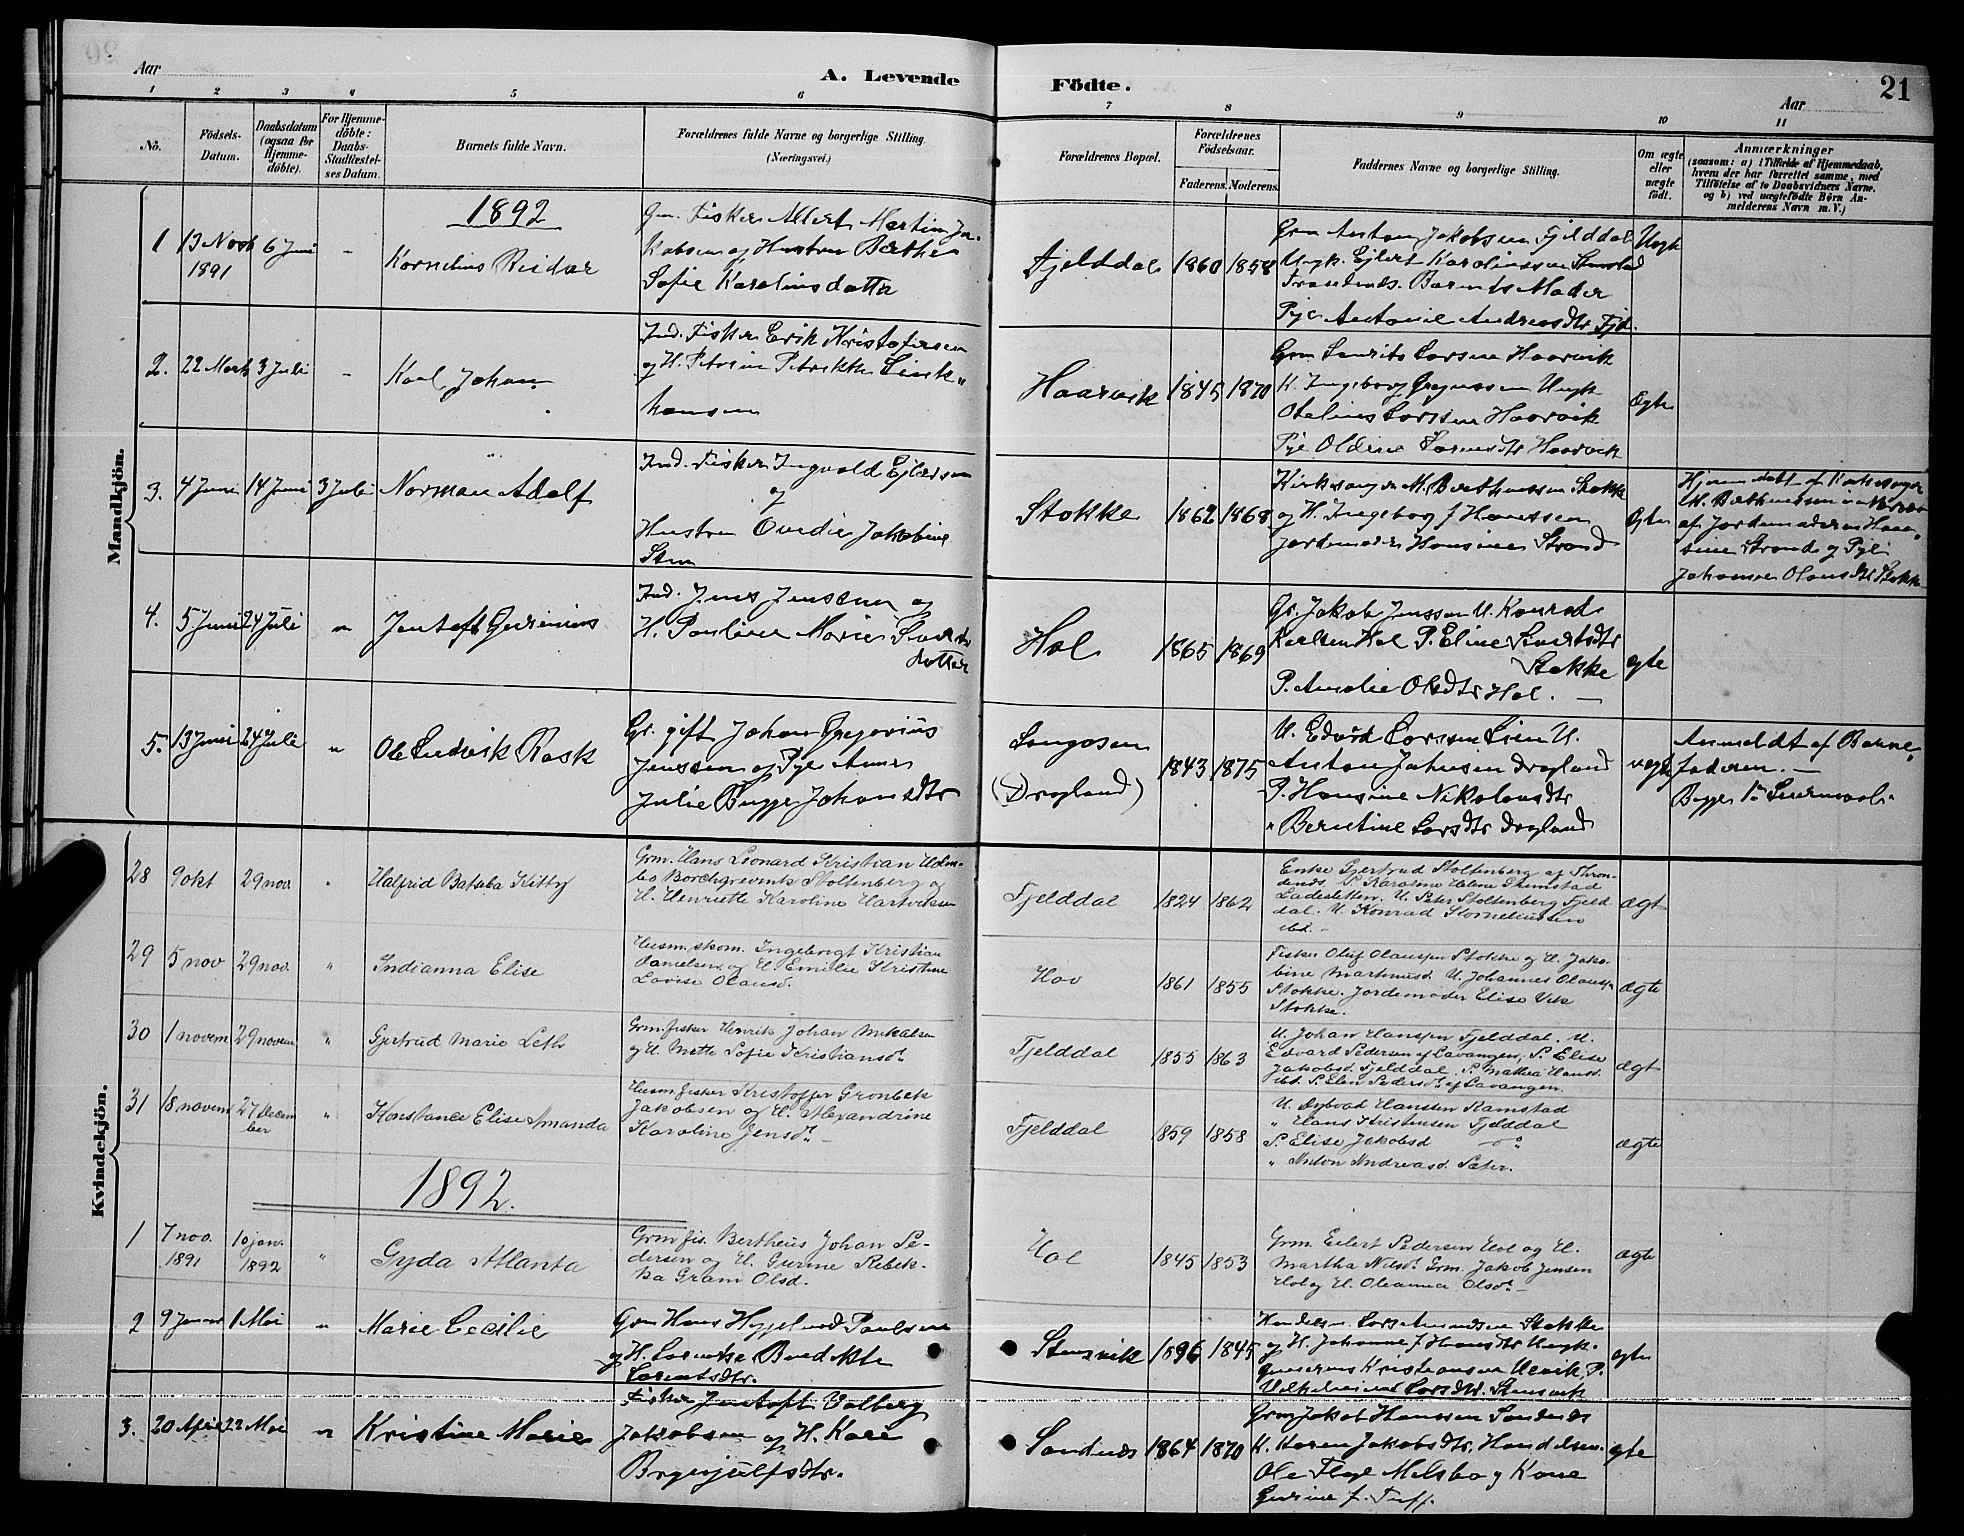 Aar
A. Levende
Födte.
Aar
21
1 2 3 4 5 6 7 8 9 10 11
No.
Födsels-Datum.
Daabsdatum (ogsaa for Hjemme-döbte).
For Hjemme-döbte: Daabs-Stadfæstel-ses Datum.
Barnets fulde Navn.
Forældrenes fulde Navne og borgerlige Stilling. (Næringsvei.)
Forældrenes Bopæl.
Forældrenes Födselsaar.
Faderens. Moderens.
Faddernes Navne og borgerlige Stilling.
Om ægte eller uægte födt.
Anmærkninger
(saasom: a) i Tilfælde af Hjemmedaab, hvem der har forrettet samme, med Tilföielse af to Daabsvidners Navne. og b) ved uægtefödte Börn An-melderens Navn m. V.)
Mandkjön.
1892
1 13 Novb 1891 6 Juni - Kornelius Reidar
Gm. Fisker Albert Martin Ja-
kobsen og Hustru Berthe
Sofie Karolinsdatter
Fjelddal 1860 1858
Grm Anton Jakobsen Fjelddal
Ungk. Ejlert Karolinssen
Barnets Moder
Pige Antonie Andreasdtr Fjd.
2. 22 Marts 3 Juli - Karl Johan
Ind. Fisker Erik Kristofersen
og H. Petrikke
hansen
Haarvik 1845 1870
Grm Laurits Larsen Haarvik
K. Ingeborg Ungk
Larssen Haarvik
Pige Oldine Larsdtr Haarvik
Ægte
3. 4 Juni 14 Juni 3 Juli Norman Adolf
Ind. Fisker Ingvald Ejlersen
og
Hustru Ovedie Jakobine
Sten
Stokke 1862 1868
Kirkesanger M. Berthussen Stokke
og H. Ingeborg J Hanssen
Jordemoder Hansine Strand
Ægte
Hjemmedøbt af Kirkesanger
M. Berthussen
af Jordemoderen Han-
sine Strand og Pige
Johanna Olausdtr Stokke
4. 5 Juni 24 Juli " Jentoft Gurinius
Ind. Jens Jenssen og
H. Pauline Marie Sivertsdatter
Hol 1865 1869
Gr. Jakob Jenssen U. Konrad
Karlsen Hol P. Eline Sivertsdtr
Stokke
P. Amalie Olsdtr Hol. -
ægte
5. 13 Juni 24 Juli " Ole Ludvik Rask
Gr. gift Johan Gregorius
Jenssen og Pige Anne
Julie Bugge Johansdtr
Sengosen
(Dragland) 1843 1875
U. Edvard Larssen Lien U.
Anton Johnsen Dragland
P. Hansine Nikolausdtr
" Berntine Larsdtr Dragland
uægte
Anmeldt af Barne-
faderen. -
Kvindekjön.
28 9 okt 29 nov " Halfrid Batseba Kitty
Grm. Hans Leonard Kristian Holm-
bo Borchgrevink Stoltenberg og
H. Henriette Karoline Hartviksen
Fjelddal 1824 1862
Enke Gjertrud Stoltenberg af Thron-
denes. P. Karoline Helene
U. Peter Stoltenberg Fjeld
dal. U. Konrad Korneliussen
ibd. -
ægt
29 5 nov 29 nov. " Indianna Elise
Husm. skom. Ingebrigt Kristian
Danielsen og H. Emilie Kristine
Lovise Olausd.
Hov 1861 1855
Fisker Oluf Olaussen Stokke og H. Jako-
bine Martinusd. U. Johannes Olauss.
Stokke. Jordemoder Elise Vik
Stokke.
ægte
30 1 novem 29 novem " Gjertrud Marie Leth
Grm. fisker Henrik Johan Mikalsen
og H. Mette Sofie Kristiansd.
Fjelddal 1855 1863
U. Johan Hanssen Fjelddal. U.
Edvard Pedersen af Lavangen. P. Elise
Jakobsd. Fjelddal. P. Mathea Hansd.
ibd. P. Elen Pedersd. af Lavangen.
ægt
31 18 novem 27 Decem-ber " Konstance Elise Amanda
Husm. fisker Kristoffer Grønbek
Jakobsen og H. Alexandrine
Karoline Jensd. -
Fjelddal 1859 1858
U. Hansen Ramstad
" Hans Kristensen Fjelddal
P. Elise Jakobsd
" Andreasd. Sæter.
ægte
1892.
1 7 nov. 1891 10 jan. 1892 " Gyda Atlanta
Grm. fis. Bertheus Johan Pe-
dersen og H. Gurine Rebek-
ka Gram Olsd.
Hol 1845 1853
Grm. Eilert Pedersen Hol og H.
Martha Nilsd. Grm. Jakob Jensen
Hol og H. Oleanna Olsd. -
ægte
2 9 Januar 1 Mai " Marie Cecilie
Grm Hans Paulsen
og H. Lorentse Benedikte
Lorentsdtr.
Stensvik 1845
Handelsm. Lars Amundsen Stokke
og H. Johanne J Hansdtr Ungk.
Kristiansen P.
Larsdtr. Stensvik
ægte
3. 20 April 22 Mai " Kristine Marie
Fisker Jentoft Valberg
Jakobsen og H. Kari
Brynjulfsdtr.
Sandnes 1864 1870
Grm Jakob Hanssen Sandnes
K. Karen Jakobsdtr. Handelsm.
Ole Melsbo og Kone
Gurine f. Tuff.
ægte